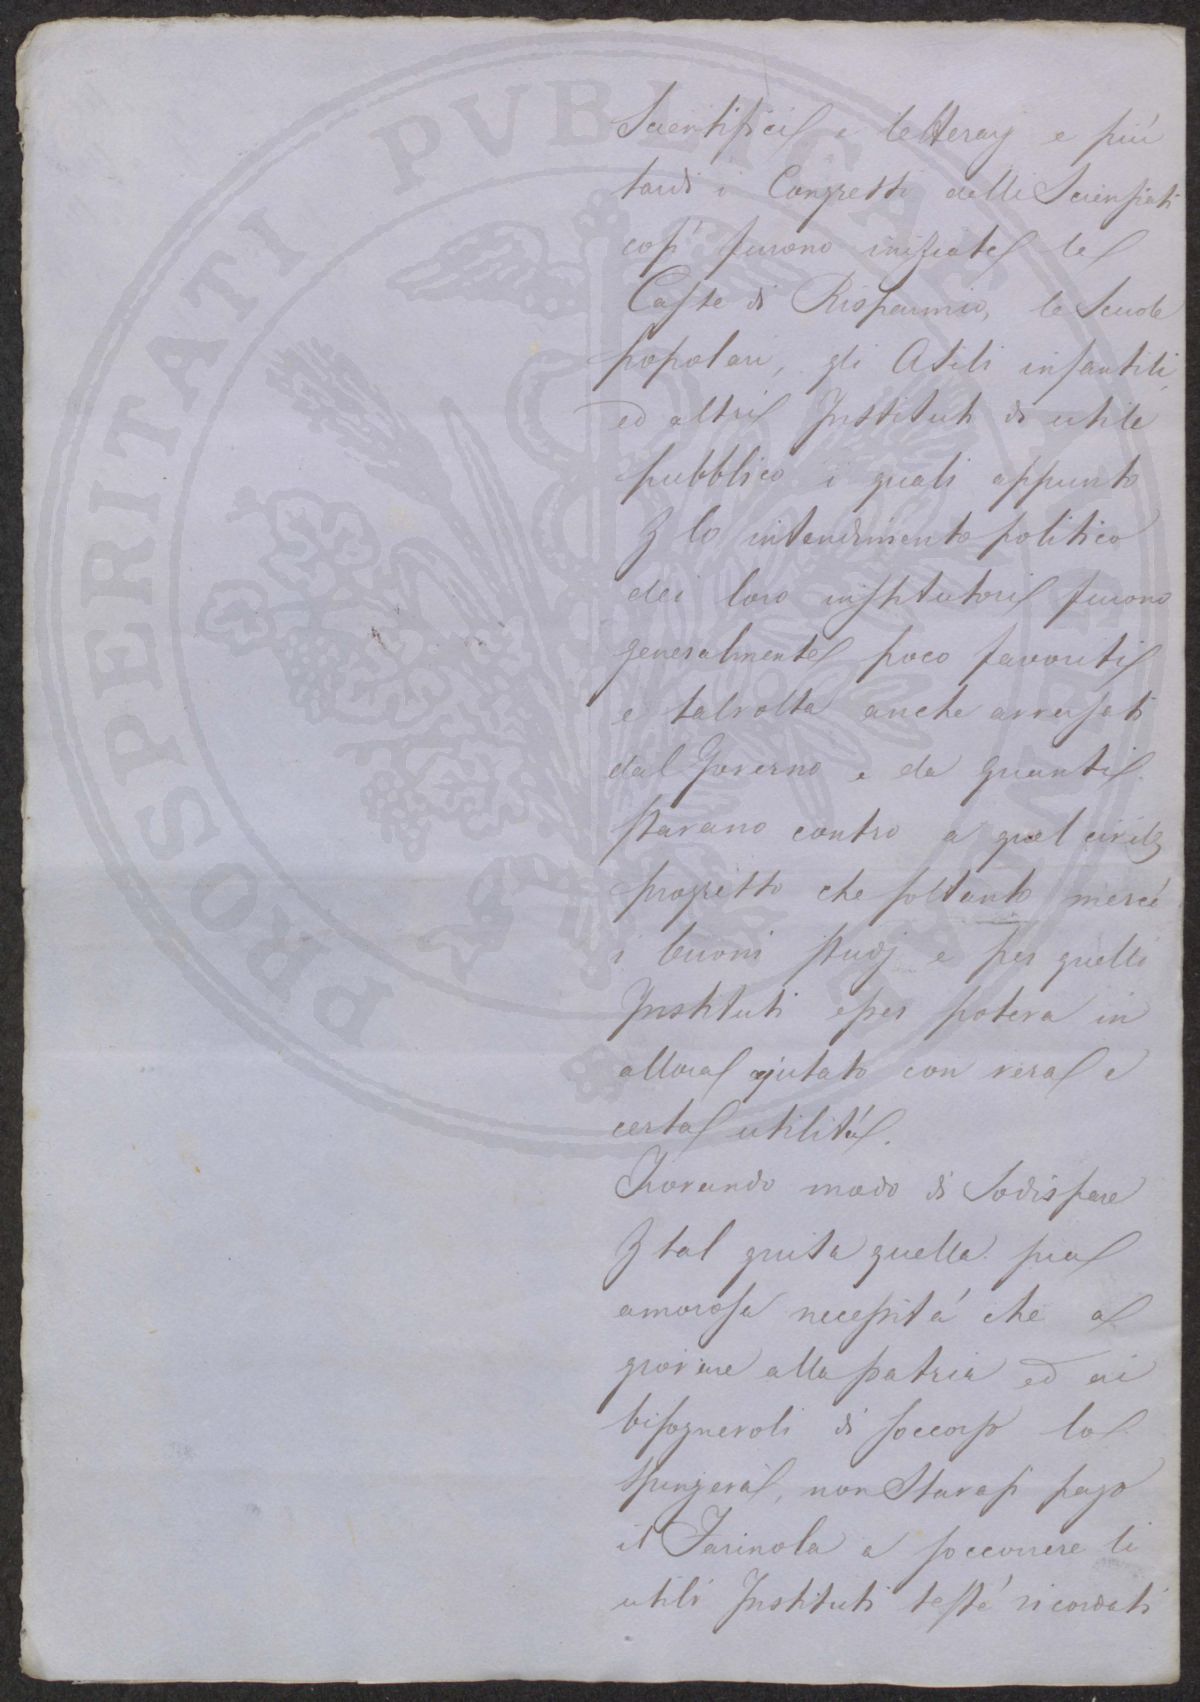 Scientifici e letterarj e più
tardi i Congressi delli Scienziati
così furono iniziate le
Casse di Risparmio, le Scuole
popolari, gli Asili infantili,
ed altri Instituti di utile
pubblico i quali appunto
p lo intendimento politico
dei loro institutori furono
generalmente poco favoriti
e talvolta anche avversati
dal Governo e da quanti
stavano contro a quel civile
progresso che soltanto mercè
i buoni studj e per quelli
Instituti esser poteva in
allora ajutato con vera e
certa utilità.
Trovando modo di Sodisfare
p tal guisa quella sua
amorosa necessità che a
giovare alla patria ed ai
bisognevoli di soccorso lo
spingeva, non Stavasi pago
il Farinola a soccorrere li
utili Instituti testé ricordati
PROSPERITATI PVBLICAE AVGENDAE